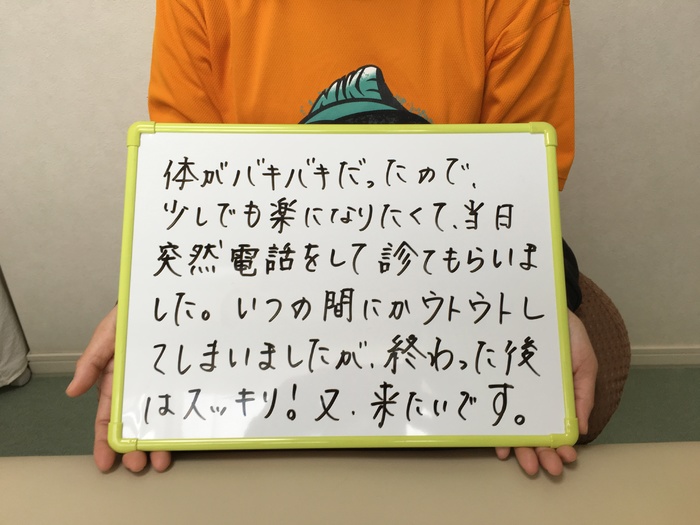 NIKE
体がバキバキだったので、
少しでも楽になりたくて、当日
突然電話をして診てもらいま
した。いつの間にかウトウトし
てしまいましたが、終わった後
はスッキリ！又、来たいです。